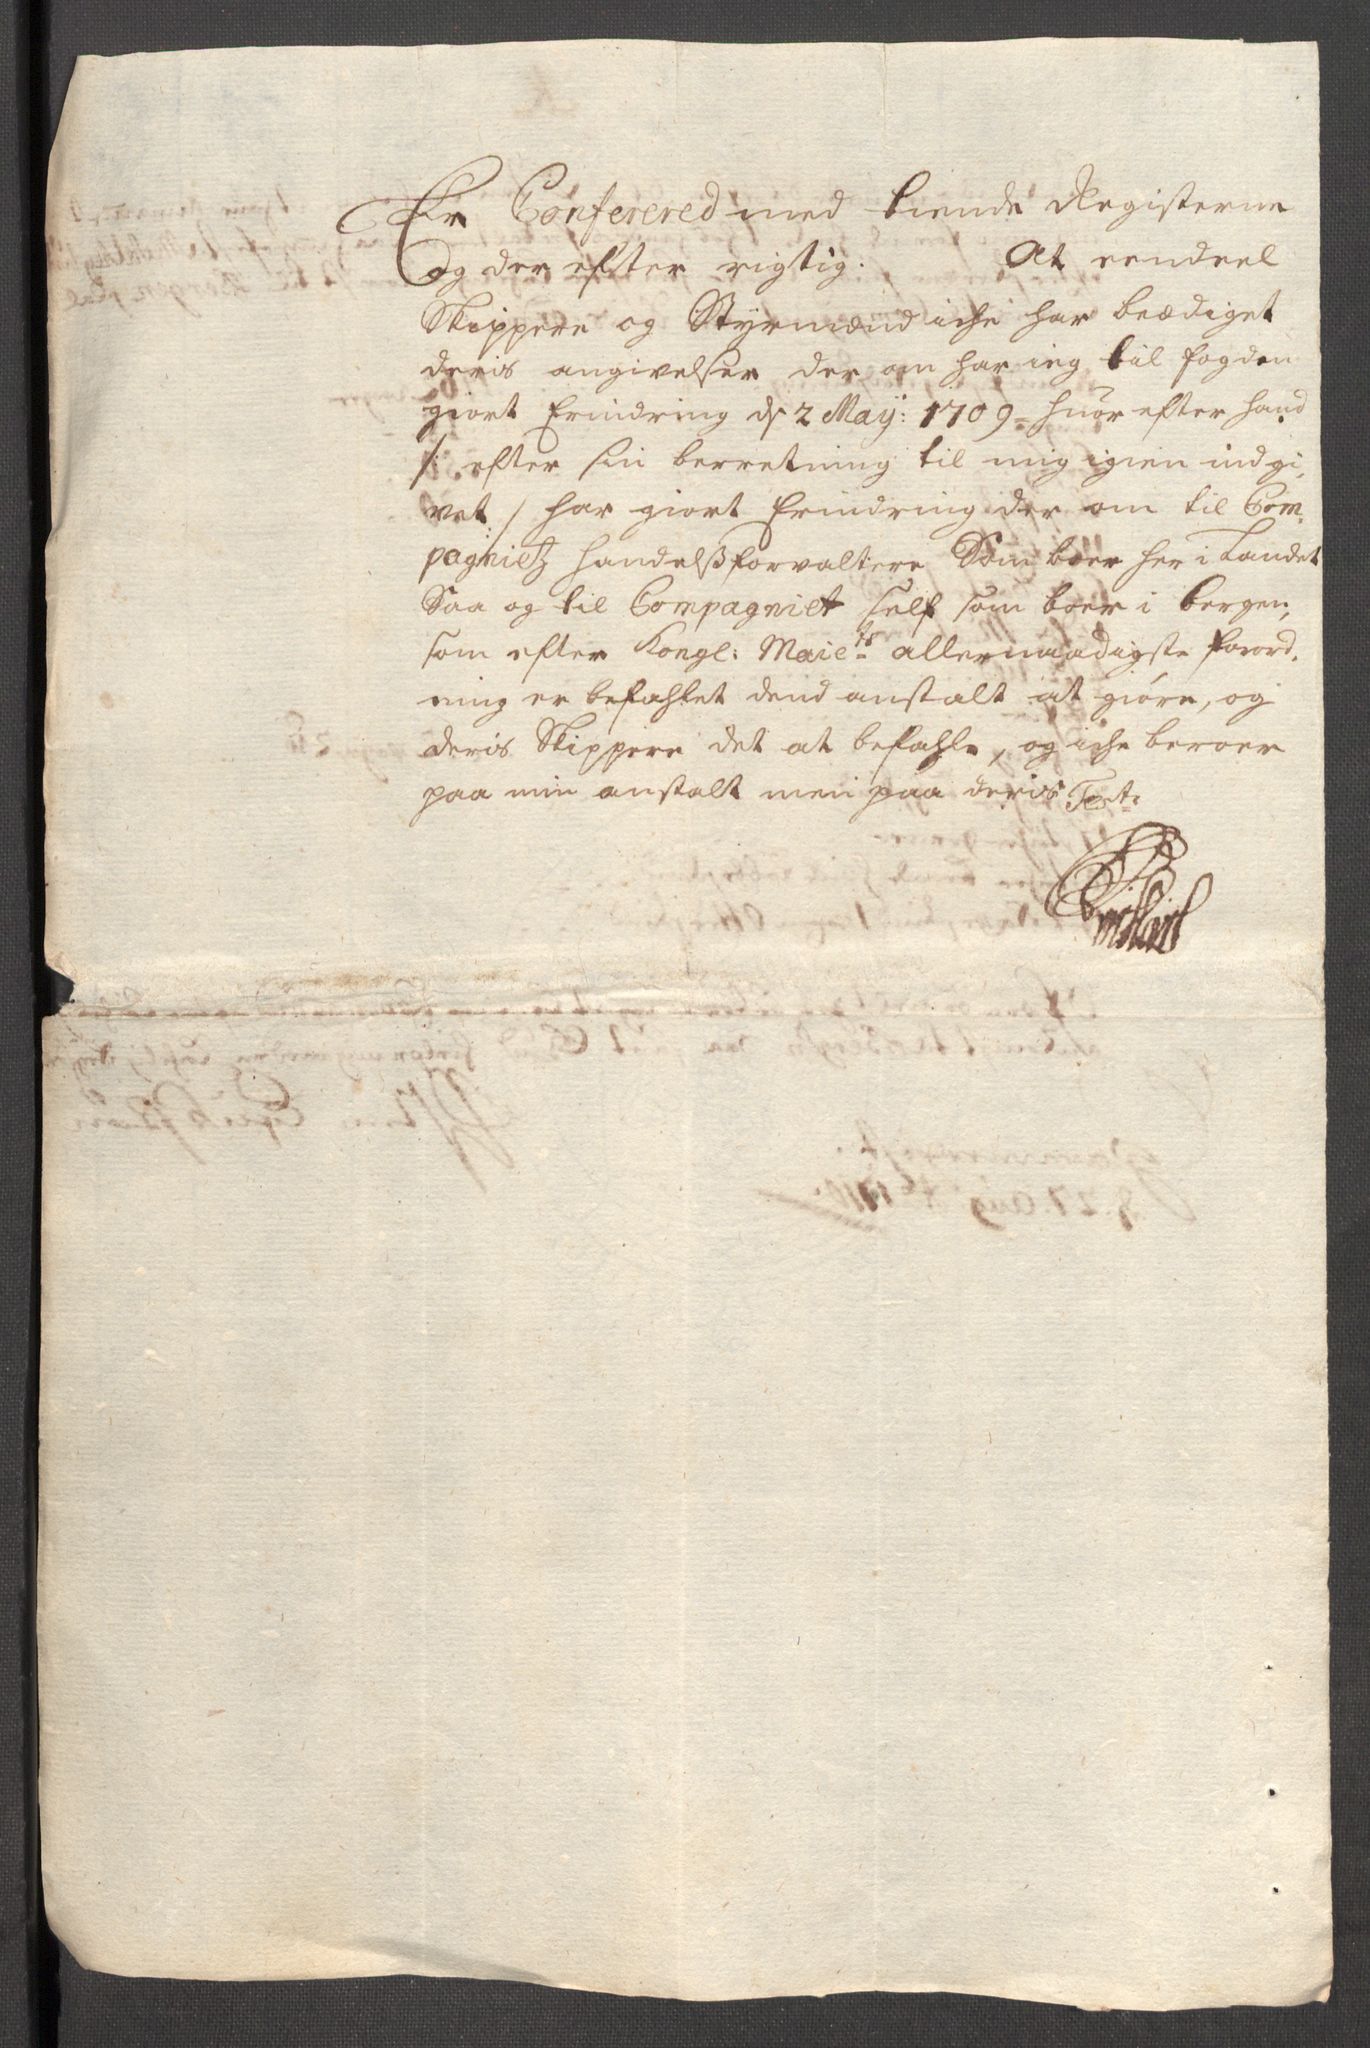 Er Conferered med tiende Registerne
Og der efter rigtig. At eendeel
Skippere og Styrmænd iche har beædiget
deris angivelser der om har ieg til fogden
giort Erindring ds 2 Maÿ: 1709 huor efter hand
/: efter sin berretning til mig igien indgi,
vet / har giort Erindring der om til Com,
pagnietz handelsßforvaltere Som boer her i Landet
Saa og til Compagniet self som boer i bergen,
som efter Kongl: Maiets allernaadigste forord,
ning er befahlet dend anstalt at giöre, og
deris Skippere det at befahle, og iche beroer
paa min anstalt men paa deris Test: